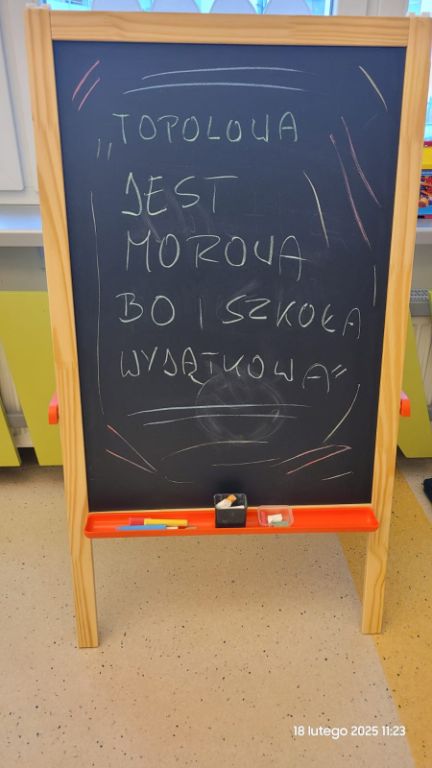 „TOPOLOWA
JEST
MOROWA
BO I SZKOŁA
WYJĄTKOWA"
18 lutego 2025 11:23